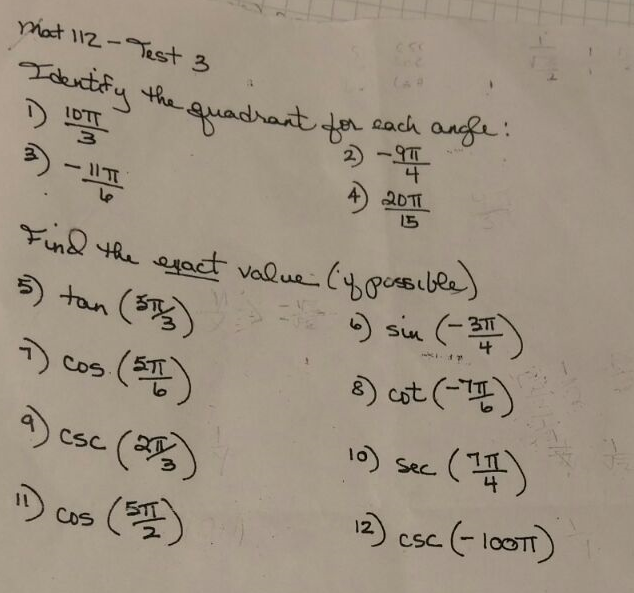 Mat 112 - Test 3
Identify the quadrant for each angle:
1) 10π/3
2) -9π/4
3) -11π/6
4) 20π/15
Find the exact value (if possible)
5) tan (5π/3)
6) sin (-3π/4)
7) cos (5π/6)
8) cot (-7π/6)
9) csc (2π/3)
10) sec (7π/4)
11) cos (5π/2)
12) csc (-100π)